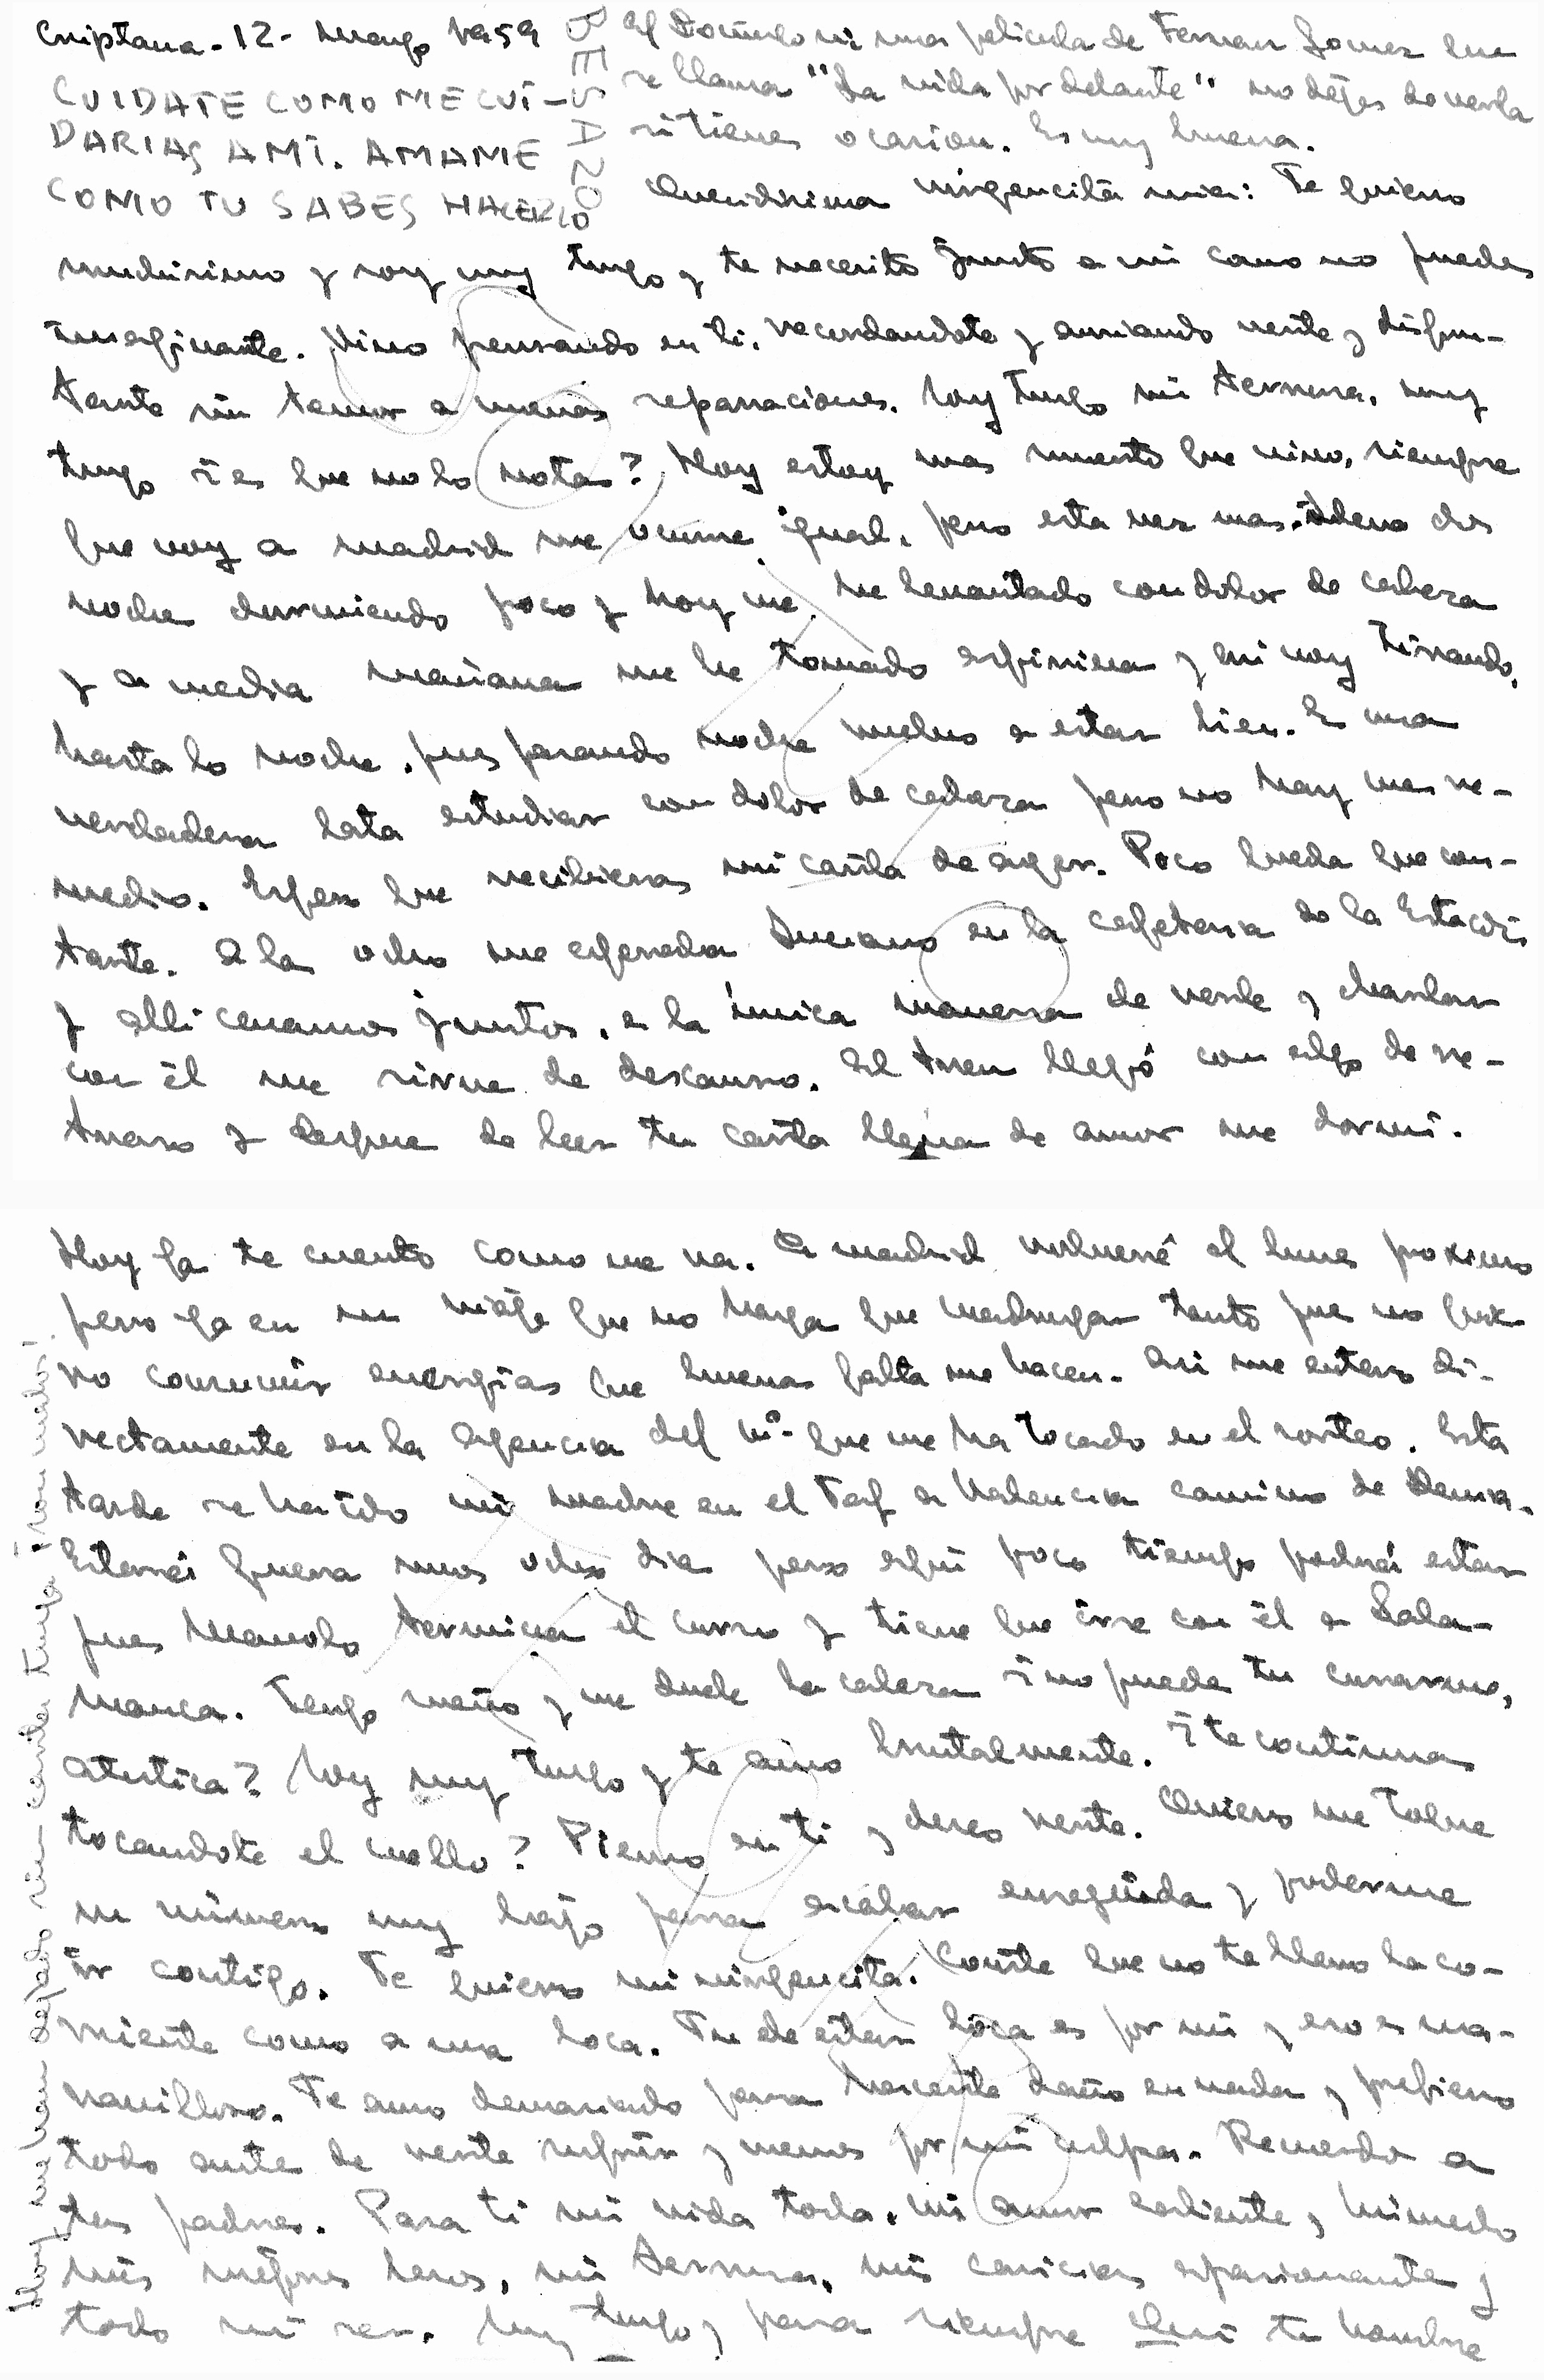 Criptana - 12 - Marzo 1959
CUIDATE COMO ME CUI-
DARIAS A MI. AMAME
COMO TU SABES HACERLO
BESINO
El Domingo vi una pelicula de Fernan Gomez que
se llama "La vida por delante" no dejes de verla
si tienes ocasion. Es muy buena.
Queridisima virgencita mia: Te quiero
muchisimo y soy muy tuyo y te necesito junto a mi como no puedes
imaginarte. Vivo pensando en ti, recordandote y ansiando verte y disfru-
tarte sin temor a nuevas separaciones. Soy tuyo mi ternura, muy
tuyo ¿es que no lo notas? Hoy estoy mas muerto que vivo, siempre
que voy a Madrid me ocurre igual, pero esta vez mas. Llevo dos
noche durmiendo poco y hoy me he levantado con dolor de cabeza
y a media mañana me he tomado aspirina y asi voy tirando,
hasta la noche, pues pasando noche vuelvo a estar bien. Es una
verdadera lata estudiar con dolor de cabeza pero no hay mas re-
medio. Espero que recibieras mi carta de ayer. Poco queda que con-
tarte. A las ocho me esperaba Luciano en la cafeteria de la Estación
y alli cenamos juntos, es la única manera de verle y charlar
con él me sirve de descanso. El tren llegó con algo de re-
traso y despues de leer tu carta llena de amor me dormi.
Hoy ya te cuento como me va. A Madrid volveré el lunes proximo
pero ya en un viaje que no haya que madrugar tanto pues no quie-
ro consumir energías que buena falta me hacen. Asi me entero di-
rectamente en la agencia del nº que me ha tocado en el sorteo. Esta
tarde se ha ido mi madre en el Taf a Valencia camino de Denia.
Estará fuera unos ocho dias pero aqui poco tiempo podrá estar
pues Manolo termina el curso y tiene que irse con él a Sala-
manca. Tengo sueño y me duele la cabeza ¿no puedes tu curarme,
atística? Soy muy tuyo y te amo brutalmente. ¿te continuas
tocandote el cuello? Pienso en ti y deseo verte. Quiero me toque
un número muy bajo para acabar enseguida y poderme
ir contigo. Te quiero mi virgencita. Conste que no te llevo la co-
rriente como a una loca. Tu de estar loca es por mi y eso es ma-
ravilloso. Te amo demasiado para hacerte daño en nada y prefiero
todo antes de verte sufrir y menos por mi culpa. Recuerdo a
tus padres. Para ti mi vida toda, mi amor caliente y húmedo
mis mejores besos, mi ternura, mis caricias apasionantes y
todo mi ser. Muy tuyo y para siempre tu hombre
Hoy me han dejado sin carta tuya ¡son malos!